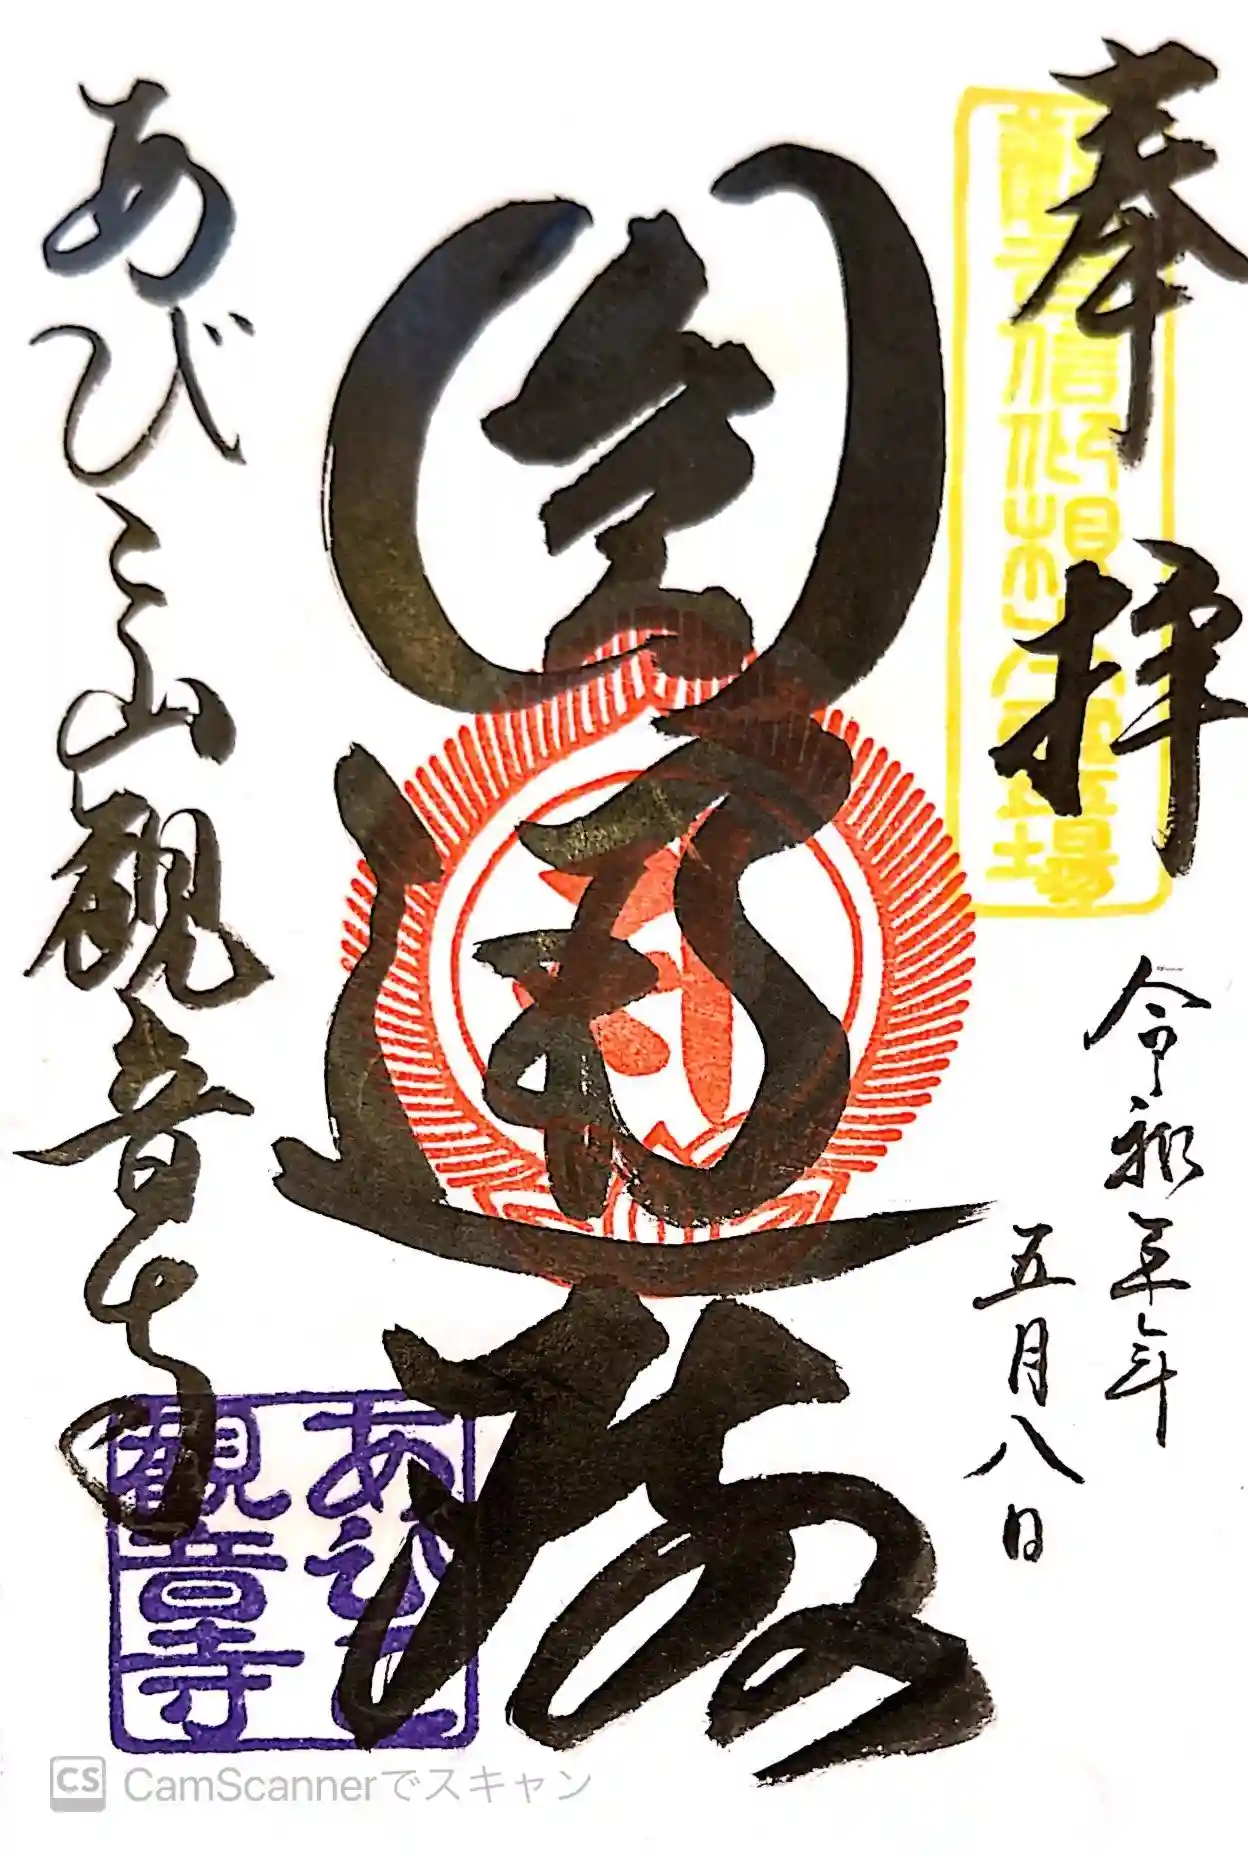 奉拝
観音信仰根本霊場
令和年
五月八日
圓通
あびこ山観音寺
あびこ
観音寺
CS CamScannerでスキャン